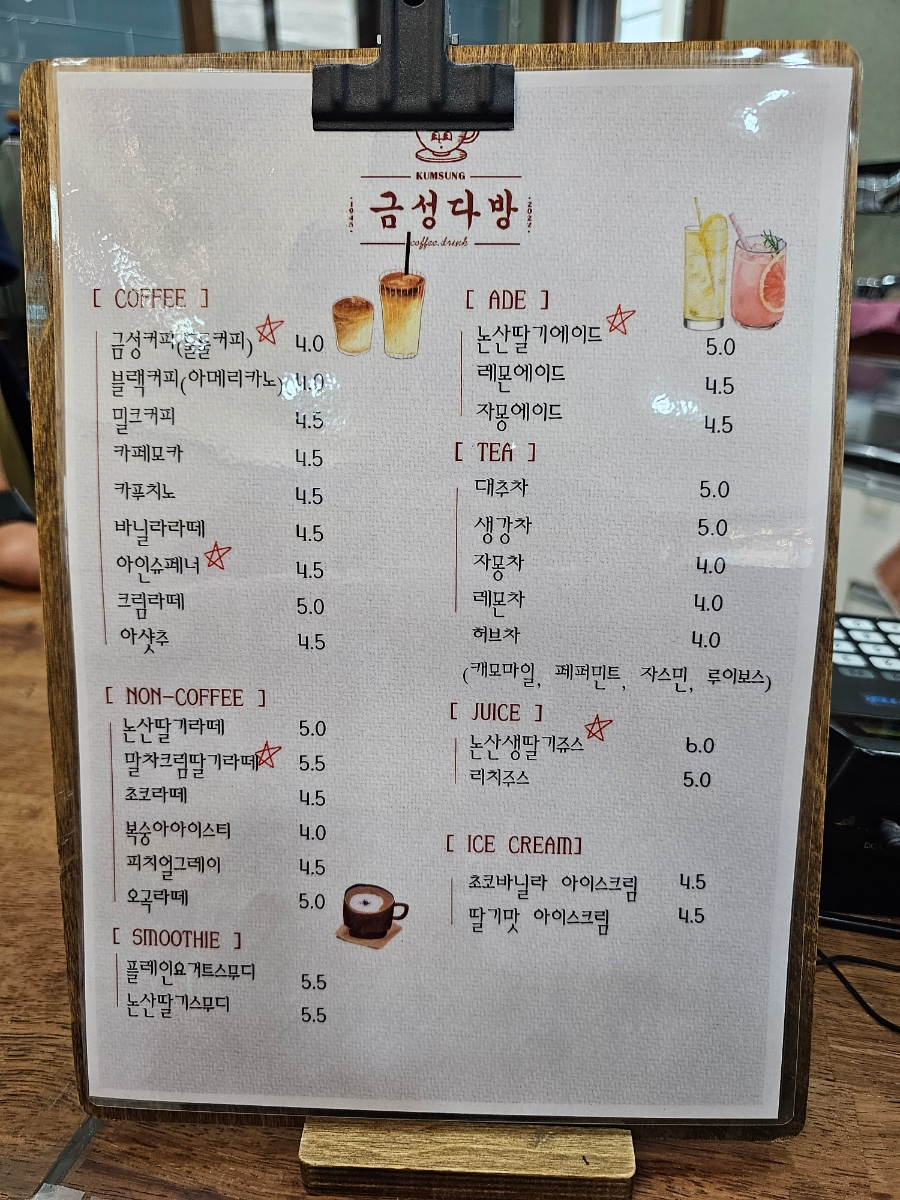 KUMSUNG
금성다방
1945
2022
coffee.drink
[ COFFEE ]
금성커피(둘둘커피) 4.0
블랙커피(아메리카노) 4.0
밀크커피 4.5
카페모카 4.5
카푸치노 4.5
바닐라라떼 4.5
아인슈페너 4.5
크림라떼 5.0
아샷추 4.5
[ NON-COFFEE ]
논산딸기라떼 5.0
말차크림딸기라떼 5.5
초코라떼 4.5
복숭아아이스티 4.0
피치얼그레이 4.5
오곡라떼 5.0
[ SMOOTHIE ]
플레인요거트스무디 5.5
논산딸기스무디 5.5
[ ADE ]
논산딸기에이드 5.0
레몬에이드 4.5
자몽에이드 4.5
[ TEA ]
대추차 5.0
생강차 5.0
자몽차 4.0
레몬차 4.0
허브차 4.0
(캐모마일, 페퍼민트, 자스민, 루이보스)
[ JUICE ]
논산생딸기쥬스 6.0
리치주스 5.0
[ ICE CREAM]
초코바닐라 아이스크림 4.5
딸기맛 아이스크림 4.5